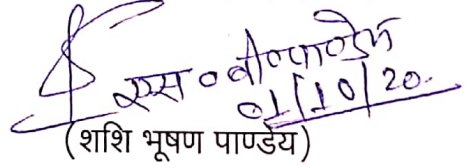 एस०बी०पाण्डेय
01/10/20.
(शशि भूषण पाण्डेय)